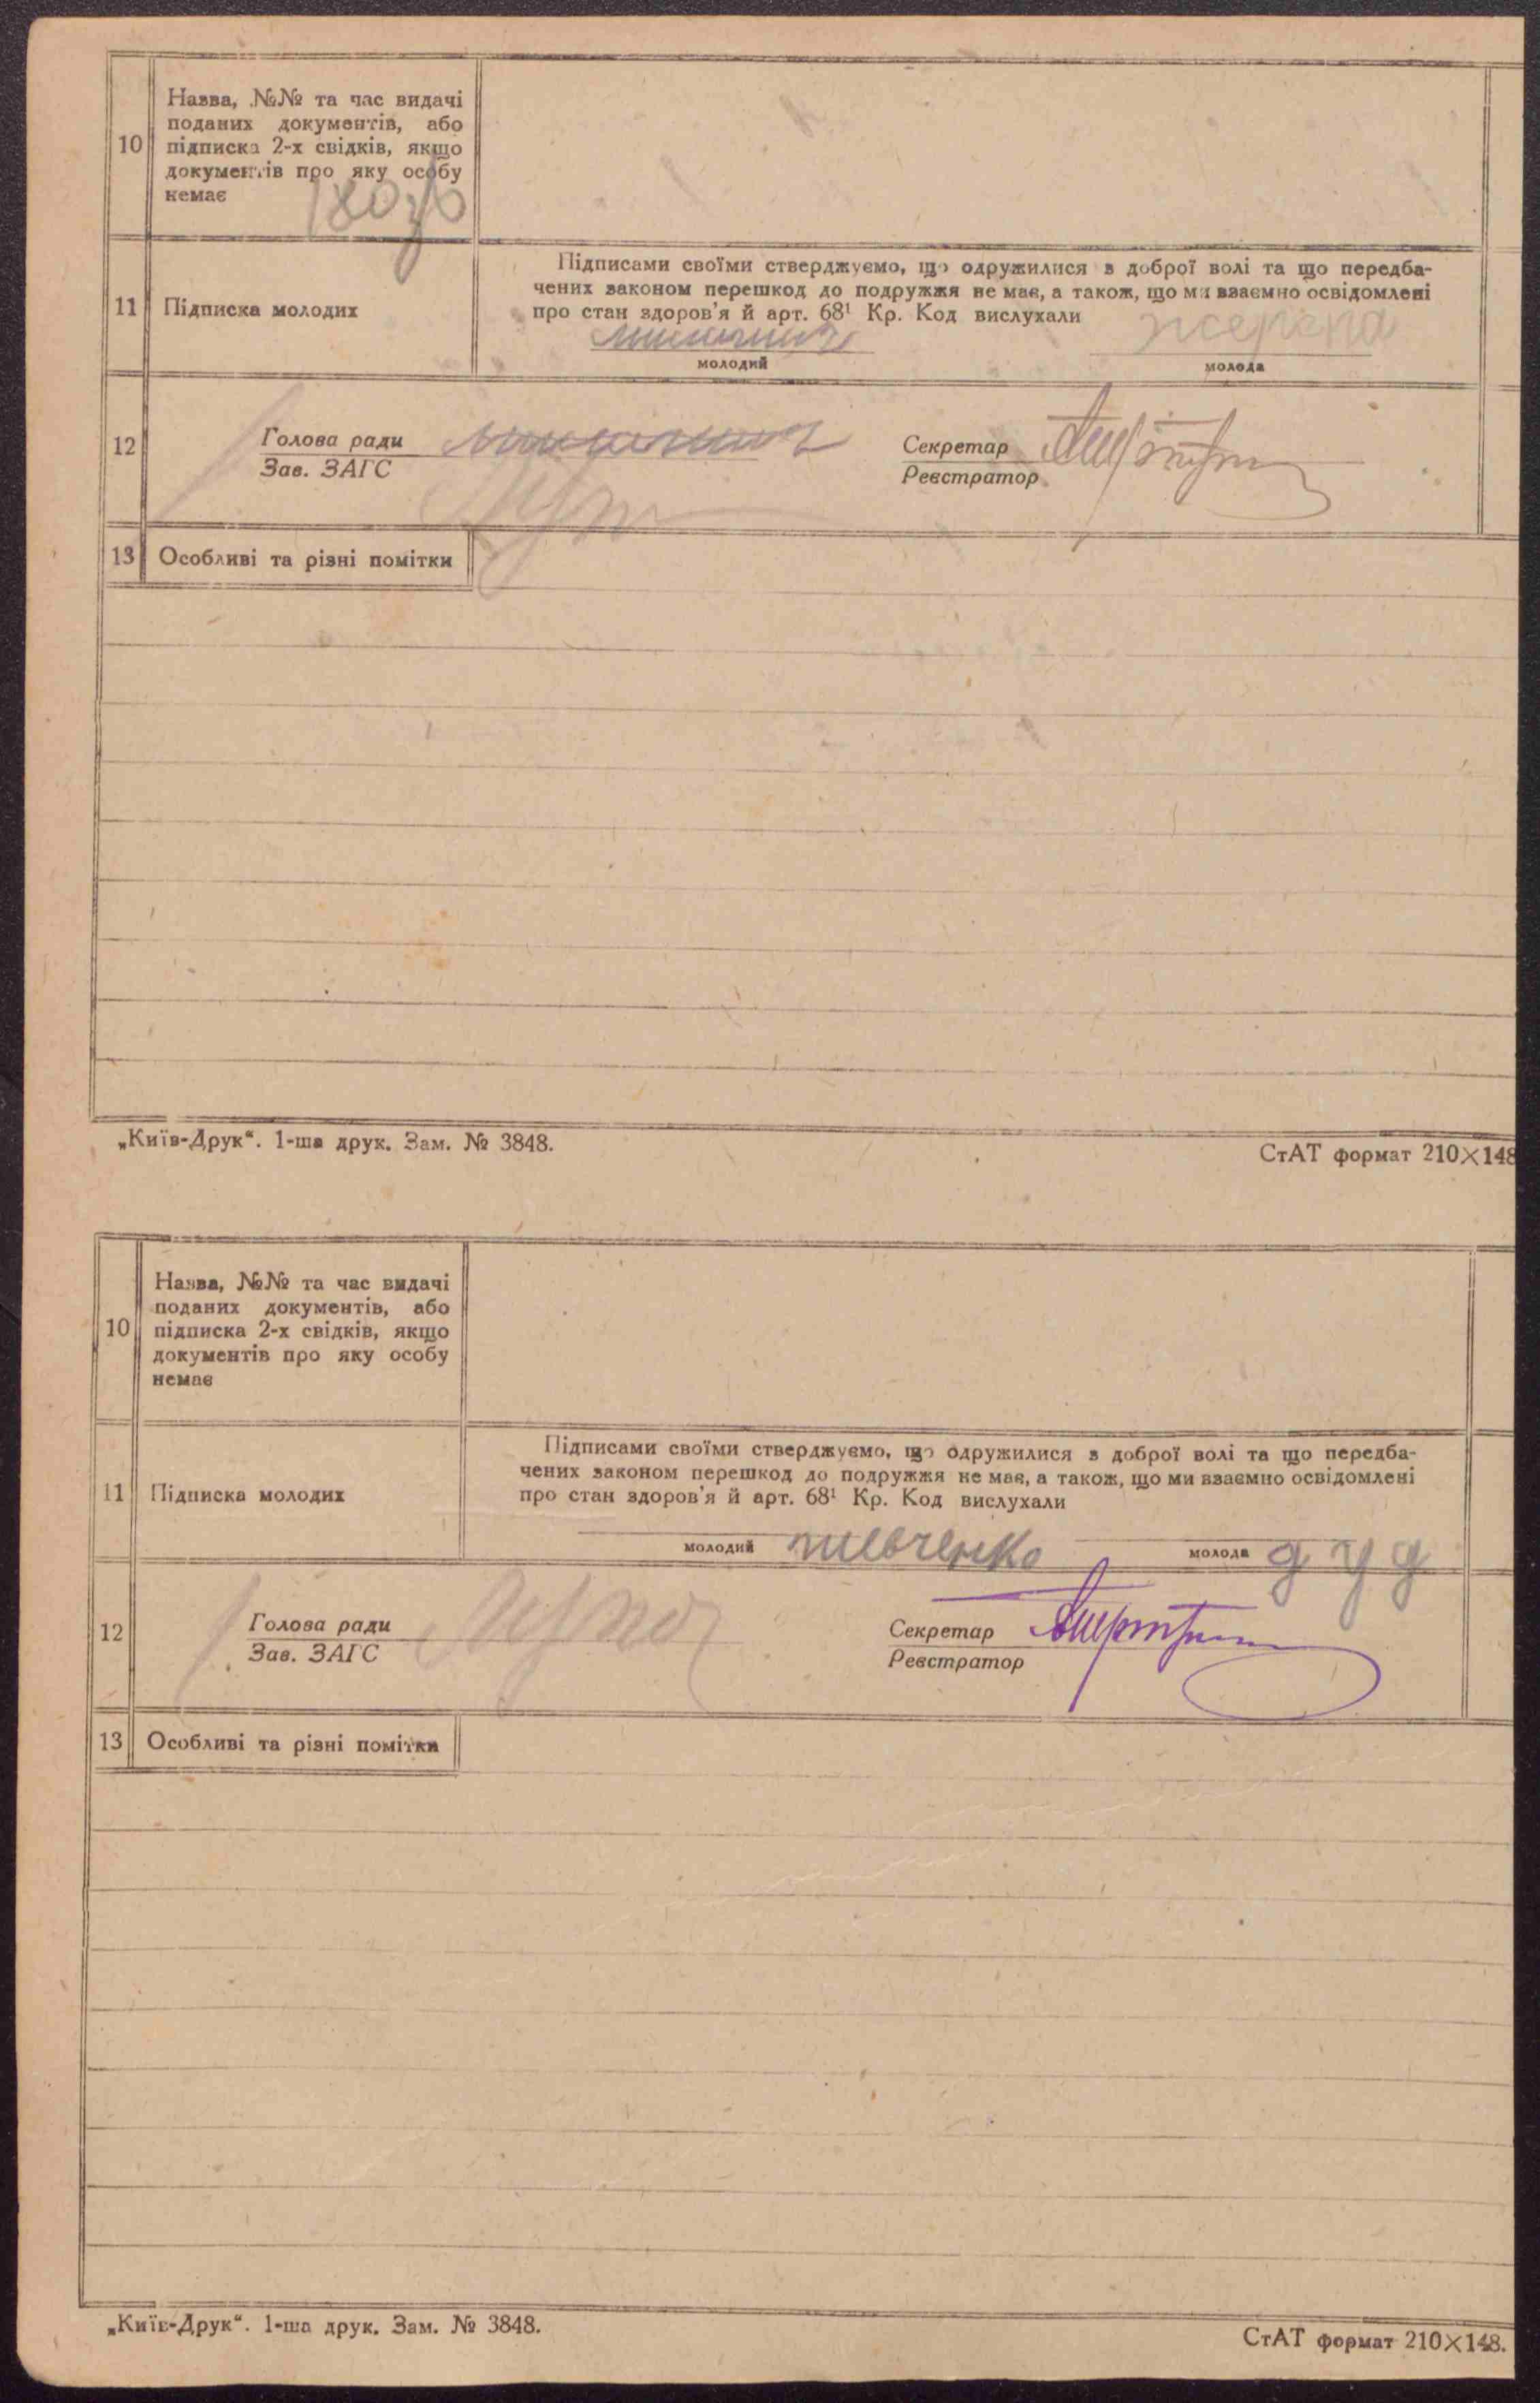 10
Назва, №№ та час видачі
поданих документів, або
підписка 2-х свідків, якщо
документів про яку особу
немає
11
Підписка молодих
Підписами своїми стверджуємо, що одружилися з доброї волі та що передба-
чених законом перешкод до подружжя не має, а також, що ми взаємно освідомлені
про стан здоров'я й арт. 68¹ Кр. Код вислухали
молодий
молода
12
Голова ради
Зав. ЗАГС
Секретар
Реєстратор
13
Особливі та різні помітки
„Київ-Друк“. 1-ша друк. Зам. № 3848.
СтАТ формат 210×148
10
Назва, №№ та час видачі
поданих документів, або
підписка 2-х свідків, якщо
документів про яку особу
немає
11
Підписка молодих
Підписами своїми стверджуємо, що одружилися з доброї волі та що передба-
чених законом перешкод до подружжя не має, а також, що ми взаємно освідомлені
про стан здоров'я й арт. 68¹ Кр. Код вислухали
молодий шевченко
молода дуд
12
Голова ради
Зав. ЗАГС
Секретар
Реєстратор
13
Особливі та різні помітки
„Київ-Друк“. 1-ша друк. Зам. № 3848.
СтАТ формат 210×148.